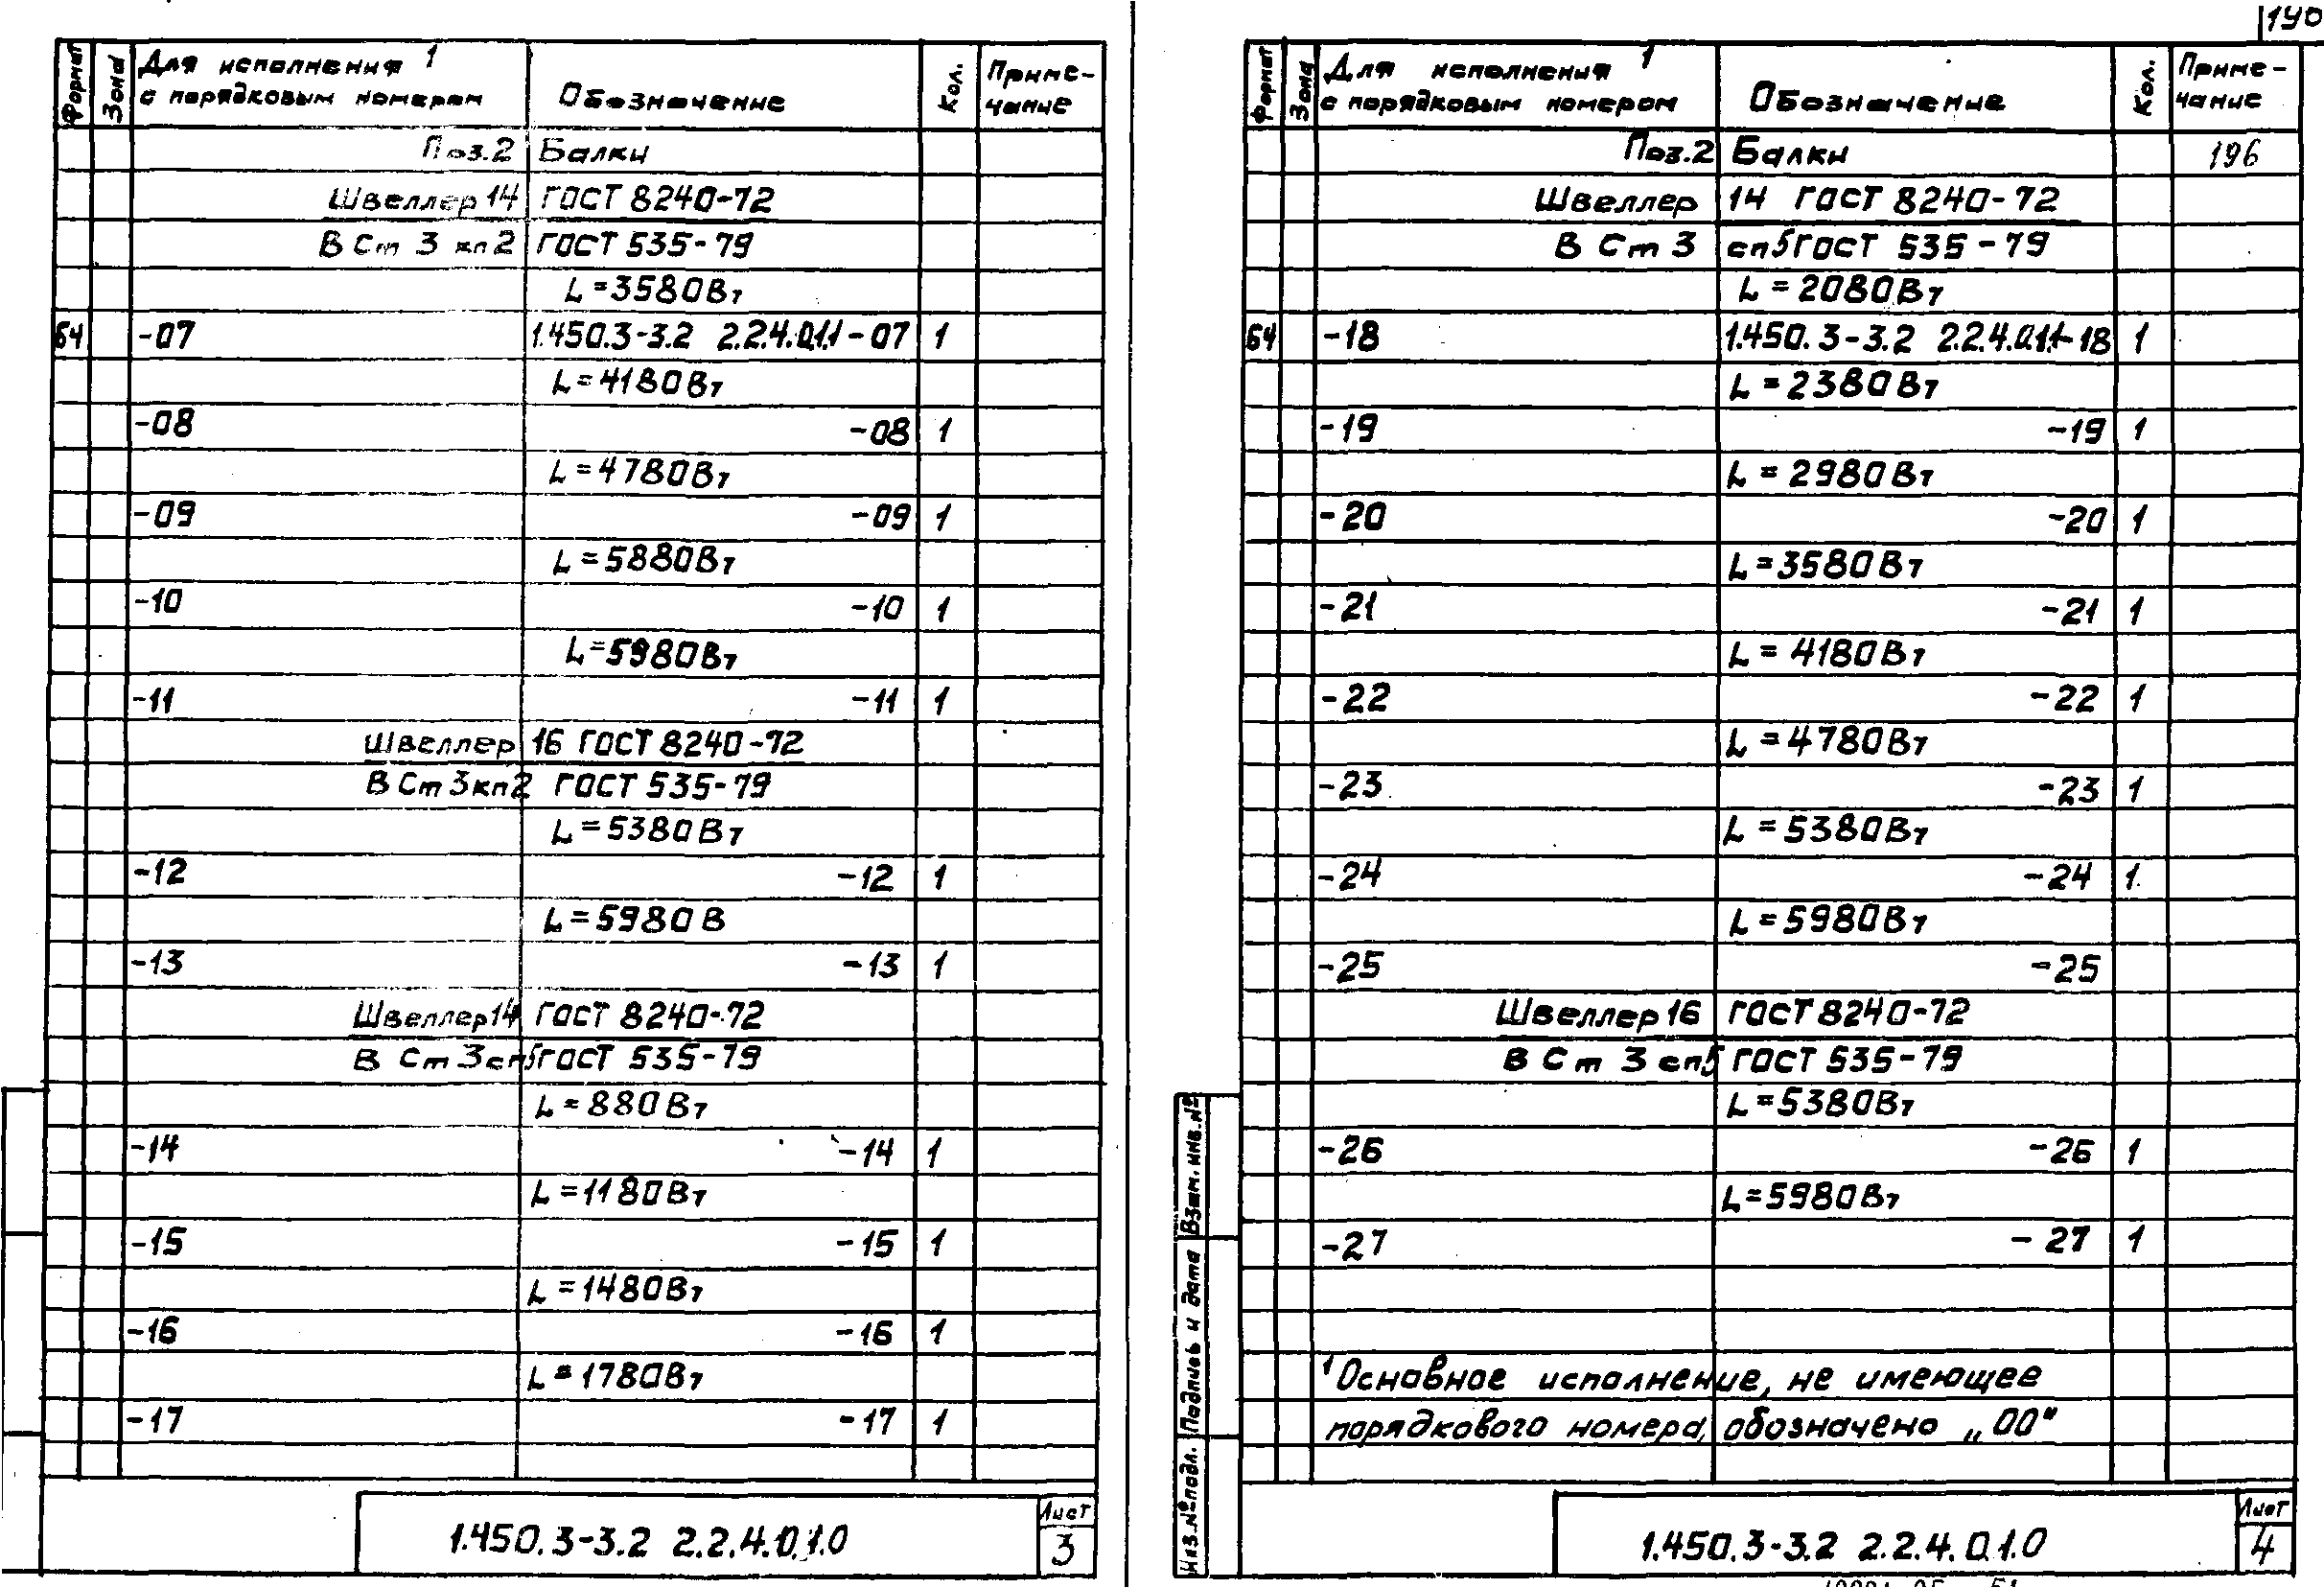 Формат Зона Для исполнения 1 с порядковым номером Обозначение Кол. Приме-чание
Поз.2 Балки
Швеллер 14 ГОСТ 8240-72
В Ст 3 кп 2 ГОСТ 535-79
L=3580Вт
Б4 -07 1.450.3-3.2 2.2.4.0.1.1-07 1
L=4180Вт
-08 -08 1
L=4780Вт
-09 -09 1
L=5880Вт
-10 -10 1
L=5980Вт
-11 -11 1
Швеллер 16 ГОСТ 8240-72
В Ст 3кп2 ГОСТ 535-79
L=5380Вт
-12 -12 1
L=5980В
-13 -13 1
Швеллер14 ГОСТ 8240-72
В Ст 3сп5 ГОСТ 535-79
L=880Вт
-14 -14 1
L=1180Вт
-15 -15 1
L=1480Вт
-16 -16 1
L=1780Вт
-17 -17 1
1.450.3-3.2 2.2.4.0.1.0
Лист
3
Формат Зона Для исполнения 1 с порядковым номером Обозначение Кол. Приме-чание
Поз.2 Балки 196
Швеллер 14 ГОСТ 8240-72
В Ст 3 сп5 ГОСТ 535-79
L=2080Вт
Б4 -18 1.450.3-3.2 2.2.4.0.1.1-18 1
L=2380Вт
-19 -19 1
L=2980Вт
-20 -20 1
L=3580Вт
-21 -21 1
L=4180Вт
-22 -22 1
L=4780Вт
-23 -23 1
L=5380Вт
-24 -24 1
L=5980Вт
-25 -25
Швеллер 16 ГОСТ 8240-72
В Ст 3 сп5 ГОСТ 535-79
L=5380Вт
-26 -26 1
L=5980Вт
-27 -27 1
1 Основное исполнение, не имеющее
порядкового номера, обозначено „00"
Взам. инв.№
Подпись и дата
Инв.№ подл.
1.450.3-3.2 2.2.4.0.1.0
Лист
4